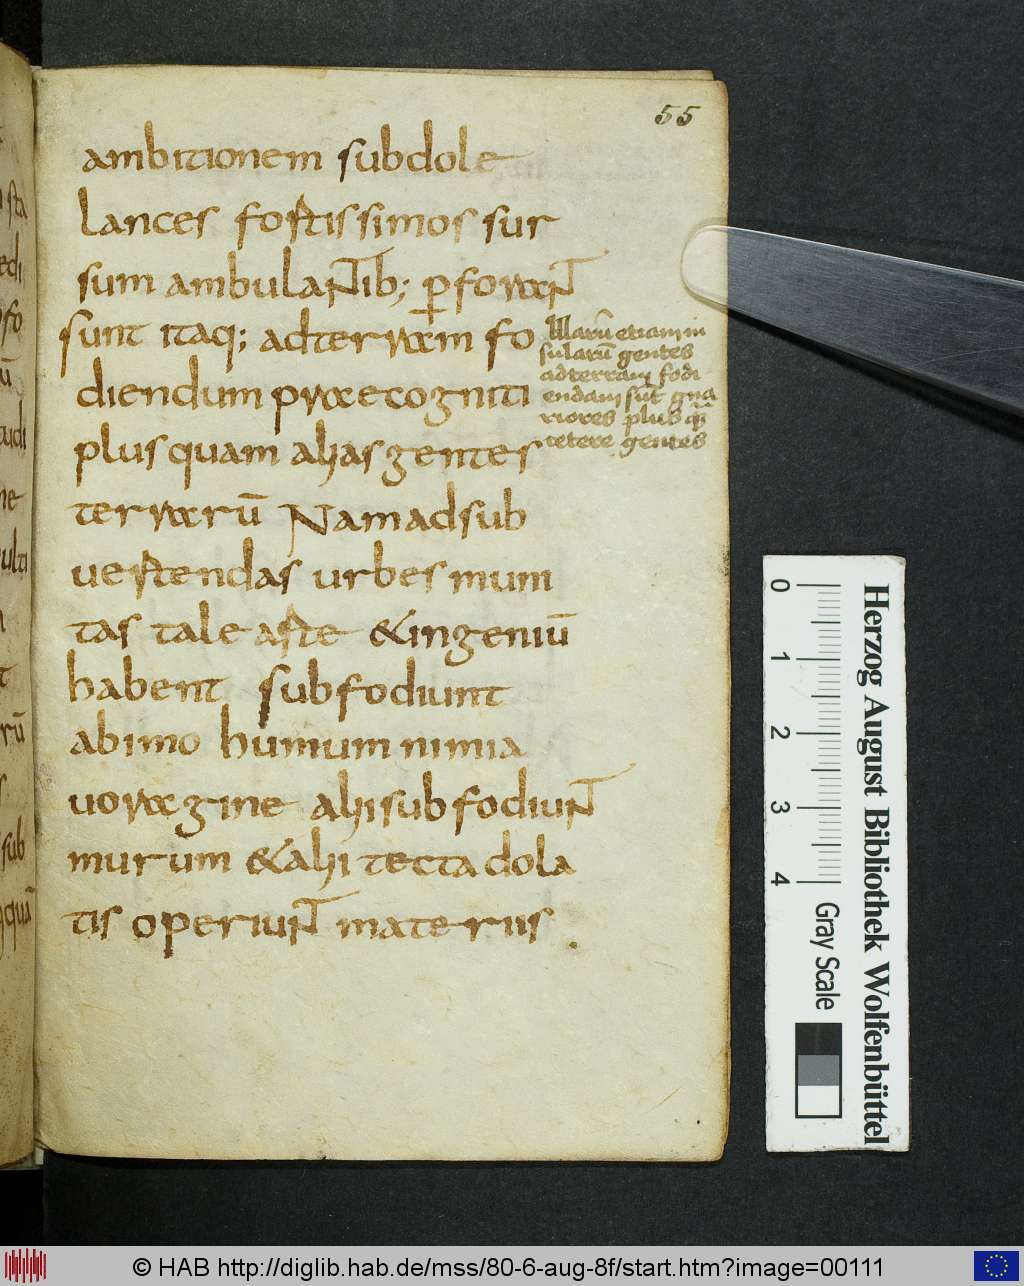 55
ambitionem subdole
lances fostissimos sur
sum ambulantib; ꝑforant
sunt itaq; adterram fo
diendum praecogniti
plusquam alias gentes
terrarū Nam adsub
uestendas urbes muni
tas tale aste &ingeniū
habent subfodiunt
abimo humum nimia
uoragine alii subfodiunt
murum &alii tecta dola
tis operiunt materiis
Illarū etiam in
sularū gentes
adterram fodi
endam sūt gna
riores plus q̄
cetere gentes
0 1 2 3 4
Gray Scale
Herzog August Bibliothek Wolfenbüttel
© HAB http://diglib.hab.de/mss/80-6-aug-8f/start.htm?image=00111